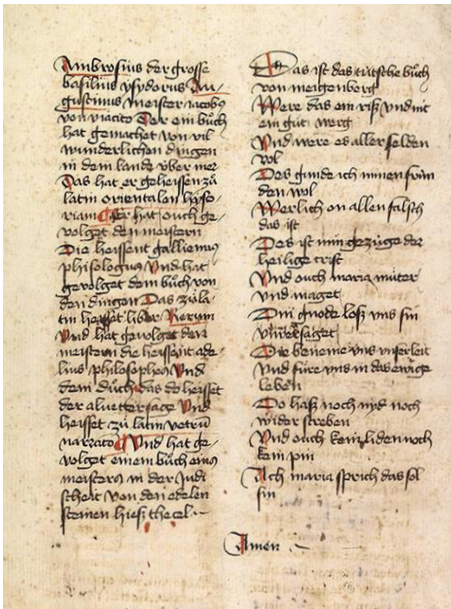 Ambrosius der grosse
basilius ysydorus Au-
gustinus meister iacobus
von viaco Der ein buͦch
hat gemachet von vil
wunderlichen dingen
in dem lande v̈ber mer
Das hat er geheissen zuͦ
latin orientalem hysto
riam Er hat ouch ge-
volget den meistern
Die heissent gallienus
phisologus Und hat
gevolget dem buͦch von
den dingen Das zuͦ la-
tin heisset liber Rerum
Und hat gevolget den
meistern die heissent ade-
lius philosophen Und
dem buͦch das do heisset
der altvetter sage Und
heisset zuͦ latin vetru
narraco Und hat ge-
volget einem buͦch eins
meisters in der Judi
scheit von den edelen
steinen hiesz thecel
Das ist das tútsche buͦch
von megenberg
Were das ein risz und nit
ein guͦt werg
Und were es aller selden
vol
Des gunde ich minen frún
den wol
Werlich on allen falsch
das ist
Des ist min gezúge der
heilige crist
Und ouch maria muͦter
und maget
Din gnode losz uns sin
unversaget
Die beneme uns unser leit
Und fúre uns in das ewige
leben
Do hasz noch nyd noch
wider streben
Und ouch kein liden noch
kein pin
Ach maria sprich das sol
sin
Amen